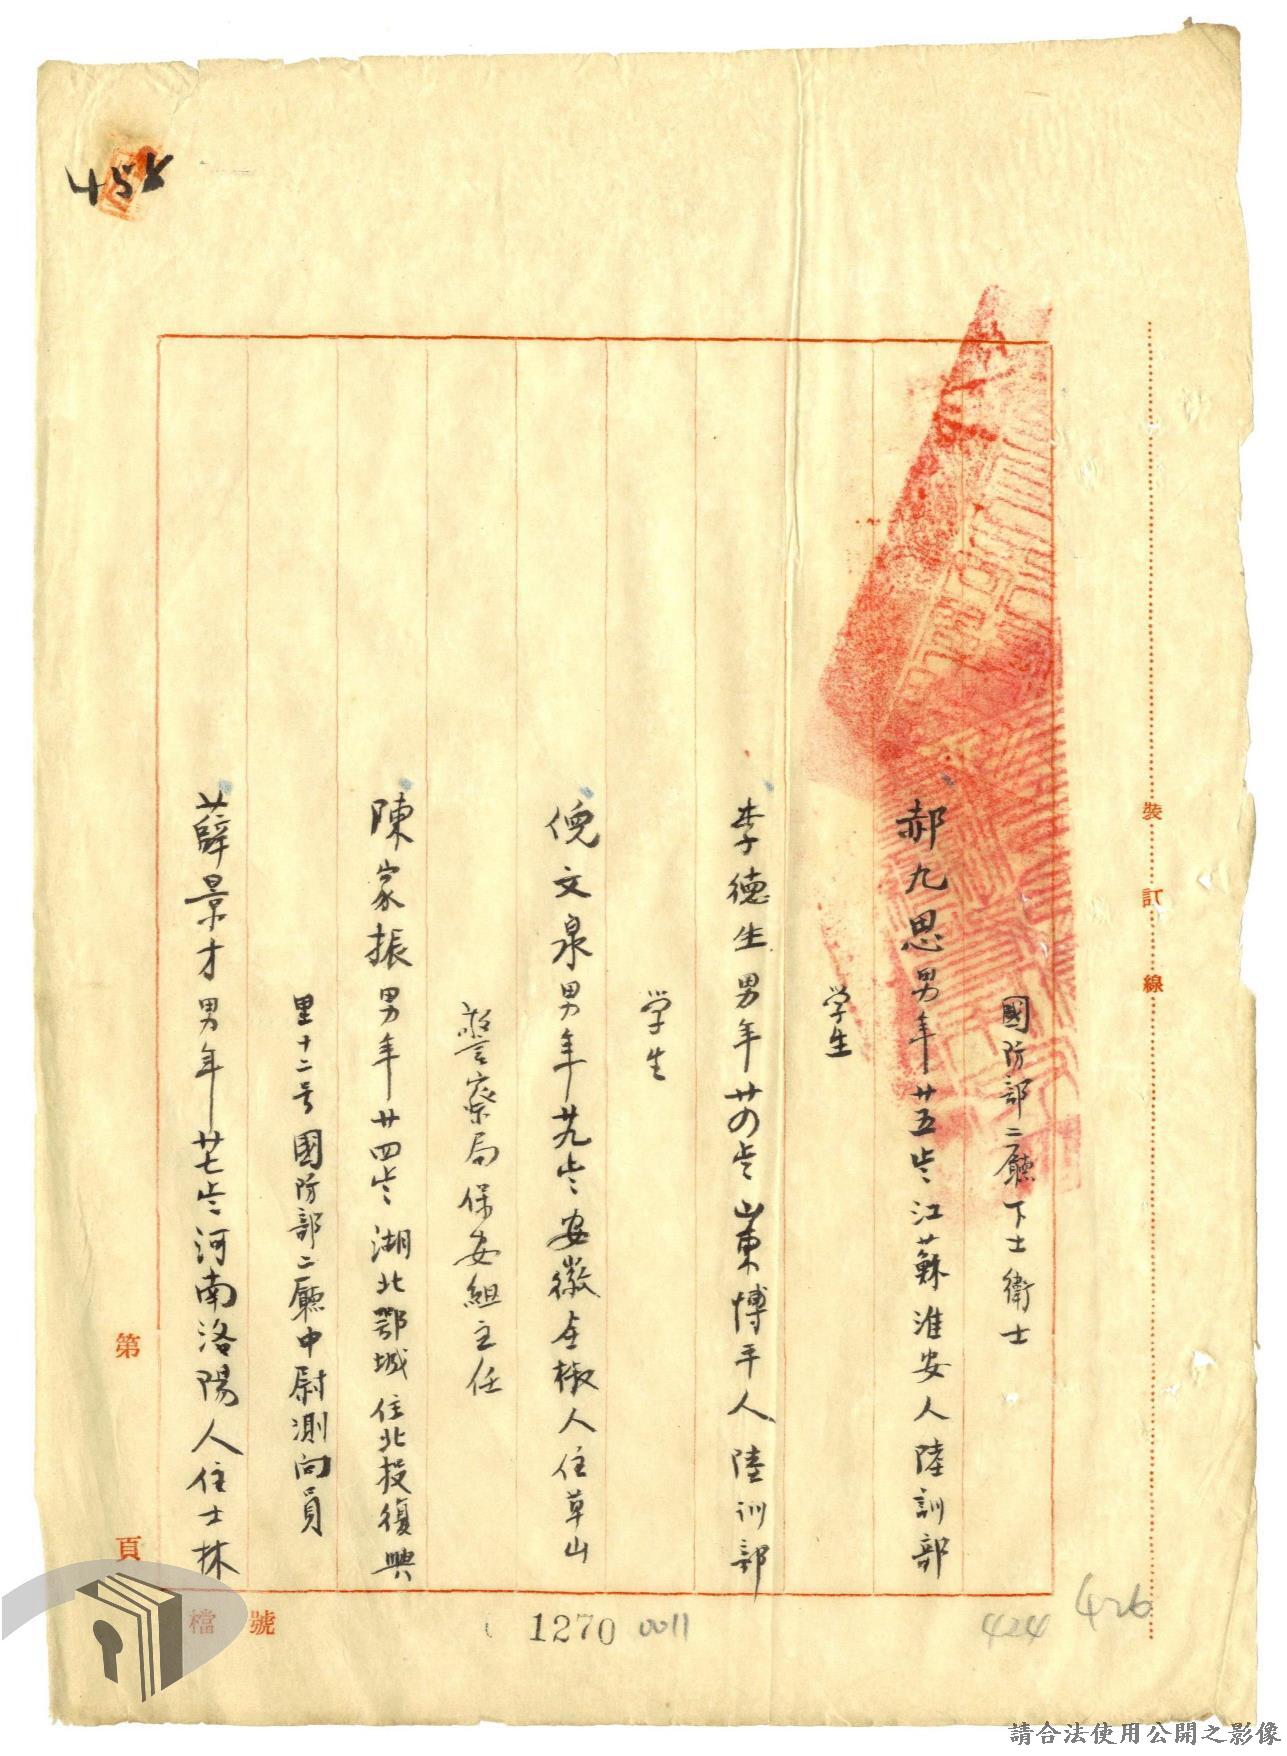 國防部二廳下士衛士
郝九思男年廿五岁江蘇淮安人陸訓部
学生
李德生男年廿四岁山東博平人陸训部
学生
倪文泉男年廿九岁安徽全椒人住草山
警察局保安組主任
陳家振男年廿四岁湖北鄂城住北投復興
里十二号國防部二廳中尉測向員
薛景才男年廿七岁河南洛陽人住士林
裝訂線
第 頁
檔號
1270 0011
424
426
請合法使用公開之影像